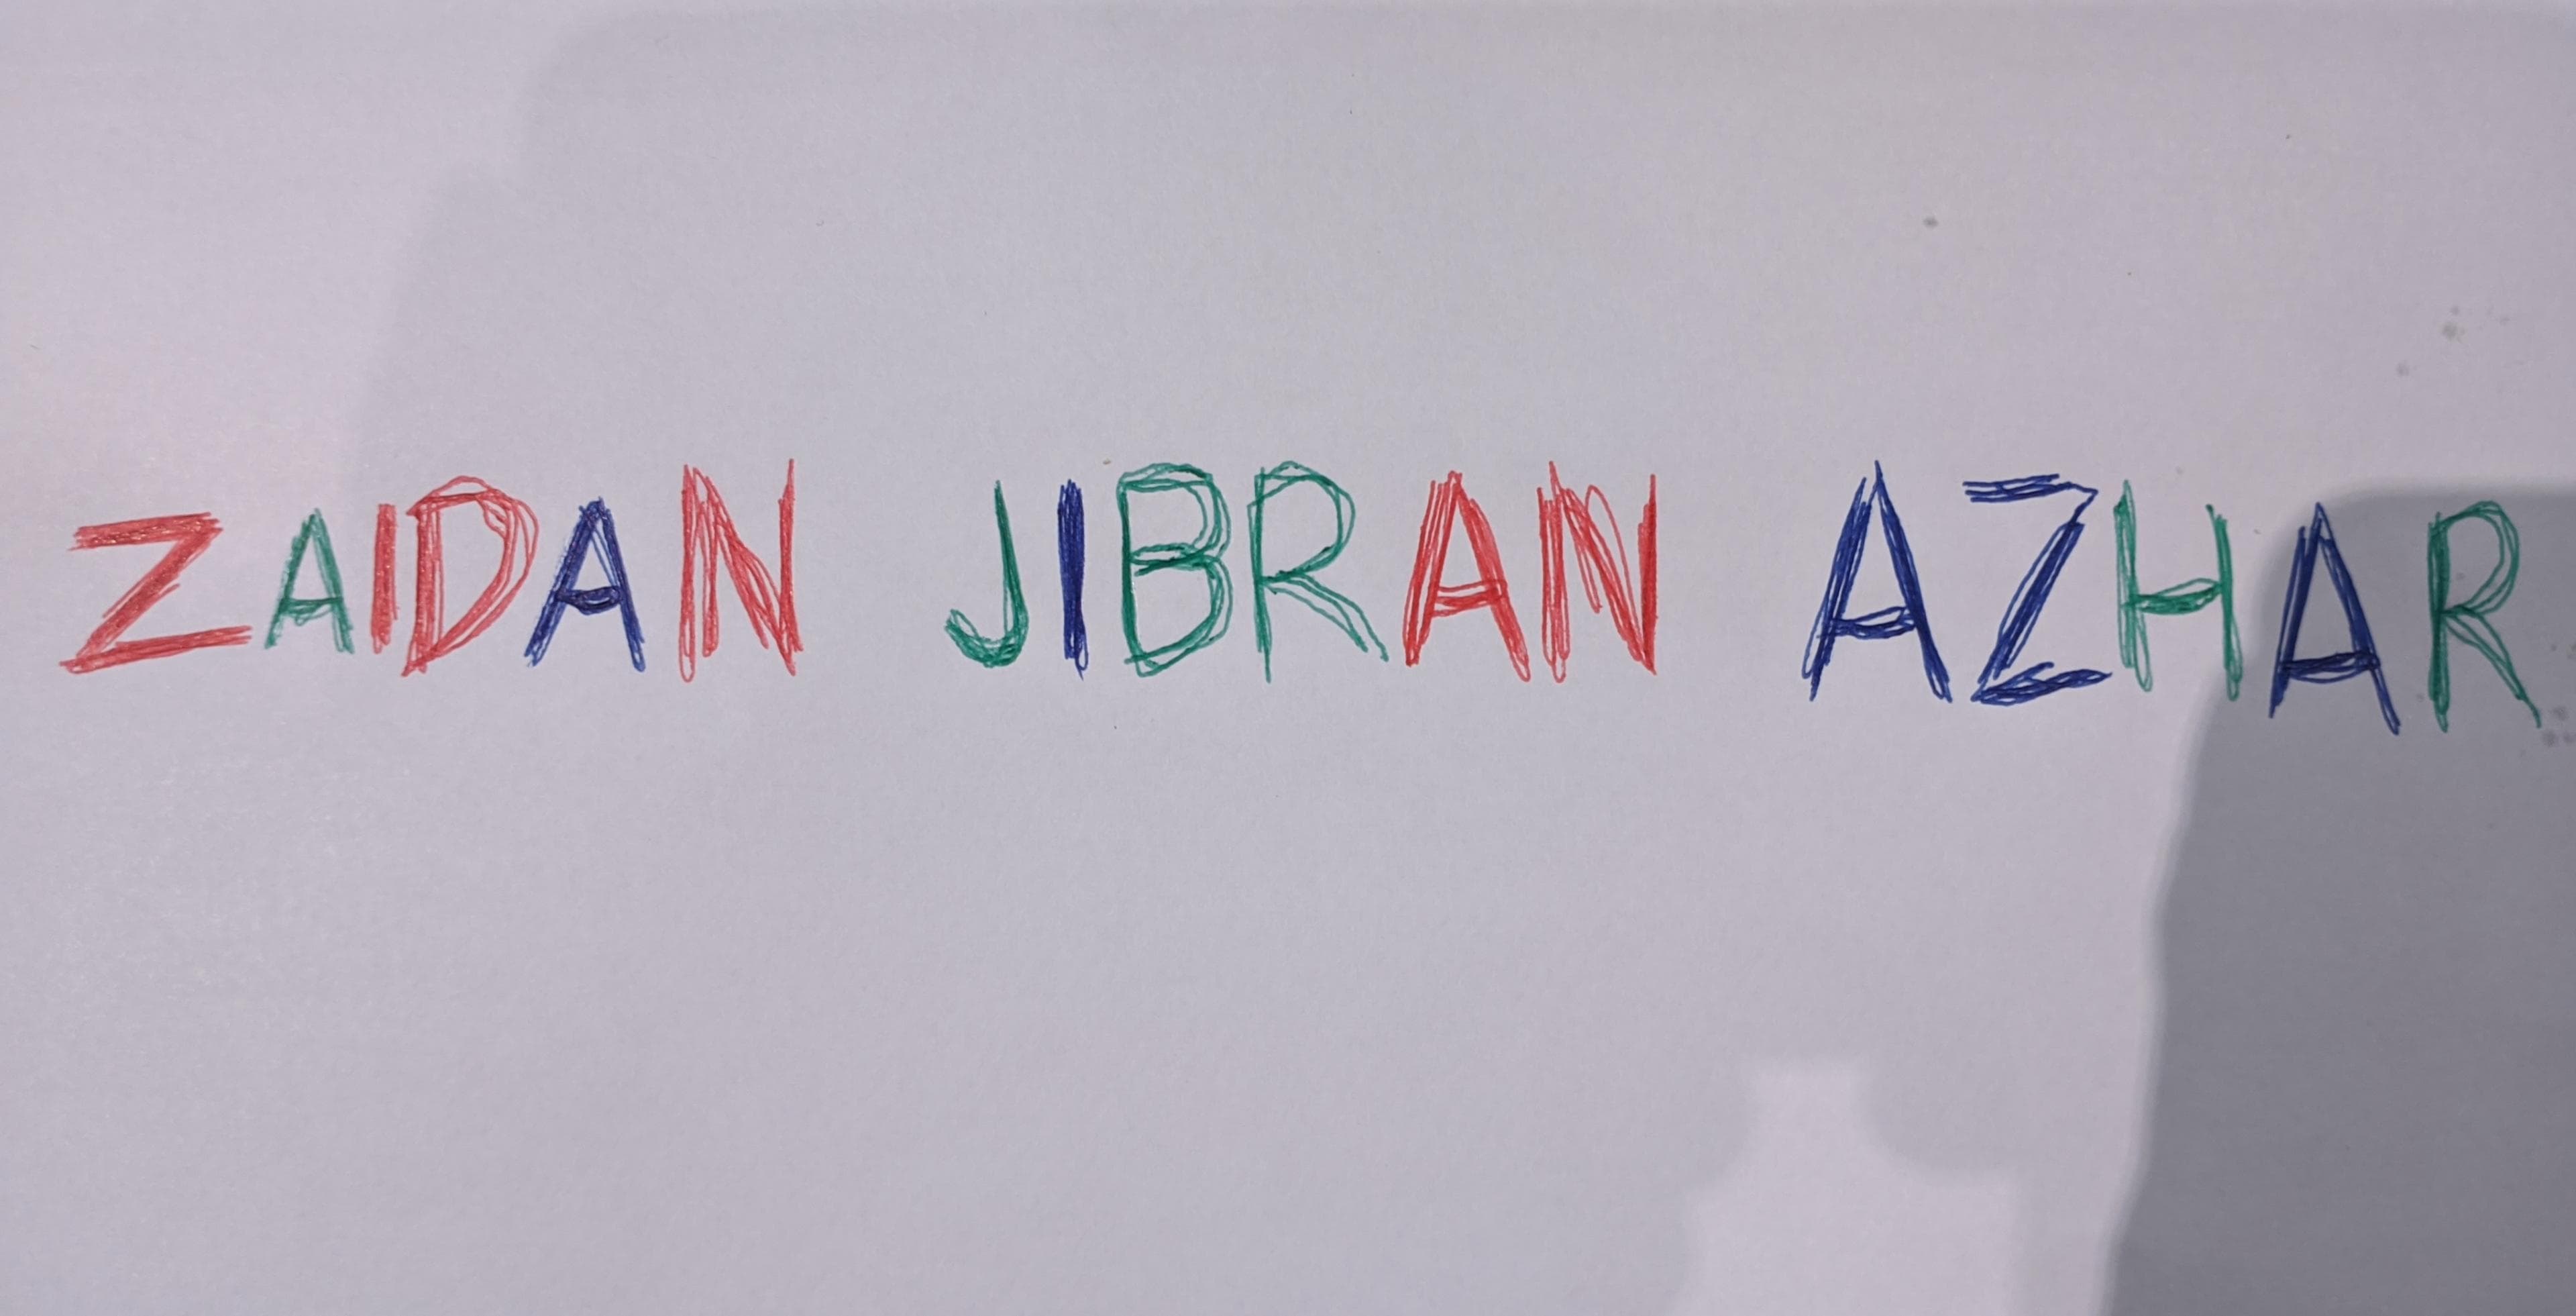 ZAIDAN JIBRAN AZHAR